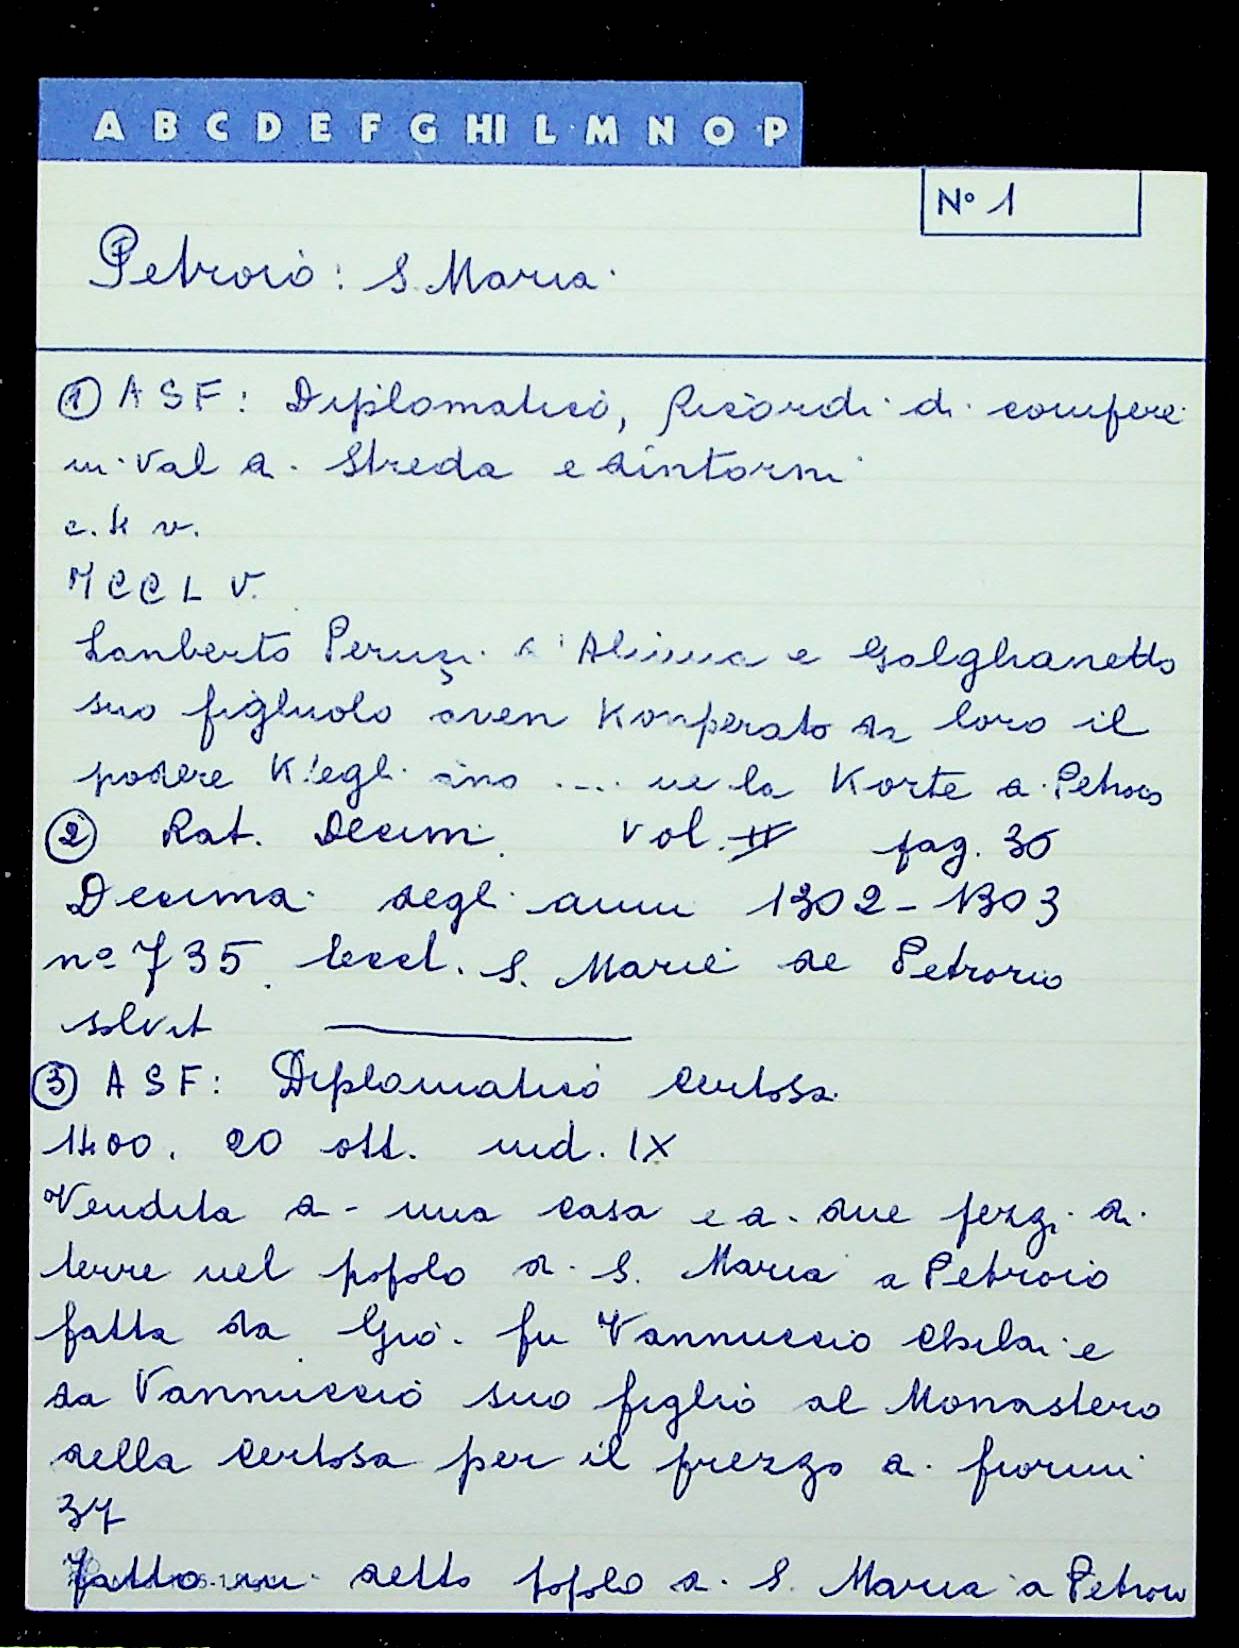 A B C D E F G HI L M N O P
N° 1
Petroio: S. Maria
① ASF: Diplomatico, Ricordi di compere
in Val di Streda e dintorni
c. 4 v.
MCCLV.
Lanberto Peruzi e Galghanetto
suo figliuolo aven Konperato da loro il
podere K'egli ano .... ne la Korte a Petroio
② Rat. Decim. Vol. II pag. 36
Decima degli anni 1302-1303
n° 735. Eccl. S. Marie de Petrorio
solvit
③ ASF: Diplomatico Certosa
1400. 20 ott. ind. IX
Vendita di una casa e di due pezzi di
terre nel popolo di S. Maria a Petroio
fatta da Gio. fu Vannuccio e
da Vannuccio suo figlio al Monastero
della Certosa per il prezzo di fiorini
37
fatto in detto popolo di S. Maria a Petroio